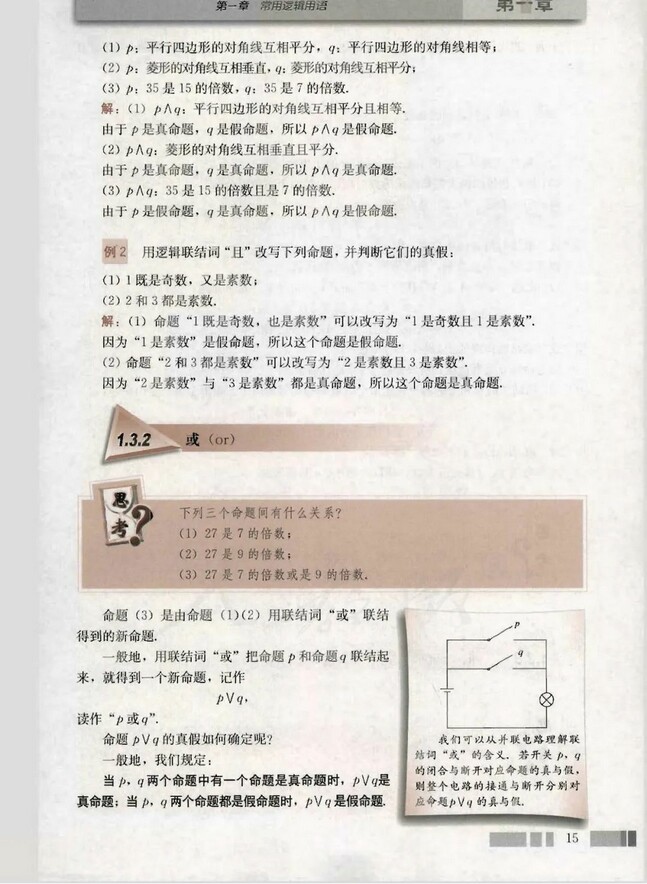 第一章 常用逻辑用语
第一章
(1) p：平行四边形的对角线互相平分，q：平行四边形的对角线相等；
(2) p：菱形的对角线互相垂直，q：菱形的对角线互相平分；
(3) p：35 是 15 的倍数，q：35 是 7 的倍数.
解：(1) p∧q：平行四边形的对角线互相平分且相等.
由于 p 是真命题，q 是假命题，所以 p∧q 是假命题.
(2) p∧q：菱形的对角线互相垂直且平分.
由于 p 是真命题，q 是真命题，所以 p∧q 是真命题.
(3) p∧q：35 是 15 的倍数且是 7 的倍数.
由于 p 是假命题，q 是真命题，所以 p∧q 是假命题.
例 2 用逻辑联结词“且”改写下列命题，并判断它们的真假：
(1) 1 既是奇数，又是素数；
(2) 2 和 3 都是素数.
解：(1) 命题“1 既是奇数，也是素数”可以改写为“1 是奇数且 1 是素数”.
因为“1 是素数”是假命题，所以这个命题是假命题.
(2) 命题“2 和 3 都是素数”可以改写为“2 是素数且 3 是素数”.
因为“2 是素数”与“3 是素数”都是真命题，所以这个命题是真命题.
1.3.2 或 (or)
思考?
下列三个命题间有什么关系？
(1) 27 是 7 的倍数；
(2) 27 是 9 的倍数；
(3) 27 是 7 的倍数或是 9 的倍数.
命题 (3) 是由命题 (1)(2) 用联结词“或”联结
得到的新命题.
一般地，用联结词“或”把命题 p 和命题 q 联结起
来，就得到一个新命题，记作
p∨q，
读作“p 或 q”.
命题 p∨q 的真假如何确定呢？
一般地，我们规定：
当 p，q 两个命题中有一个命题是真命题时，p∨q是
真命题；当 p，q 两个命题都是假命题时，p∨q 是假命题.
p
q
我们可以从并联电路理解联
结词“或”的含义. 若开关 p，q
的闭合与断开对应命题的真与假，
则整个电路的接通与断开分别对
应命题p∨q 的真与假.
15